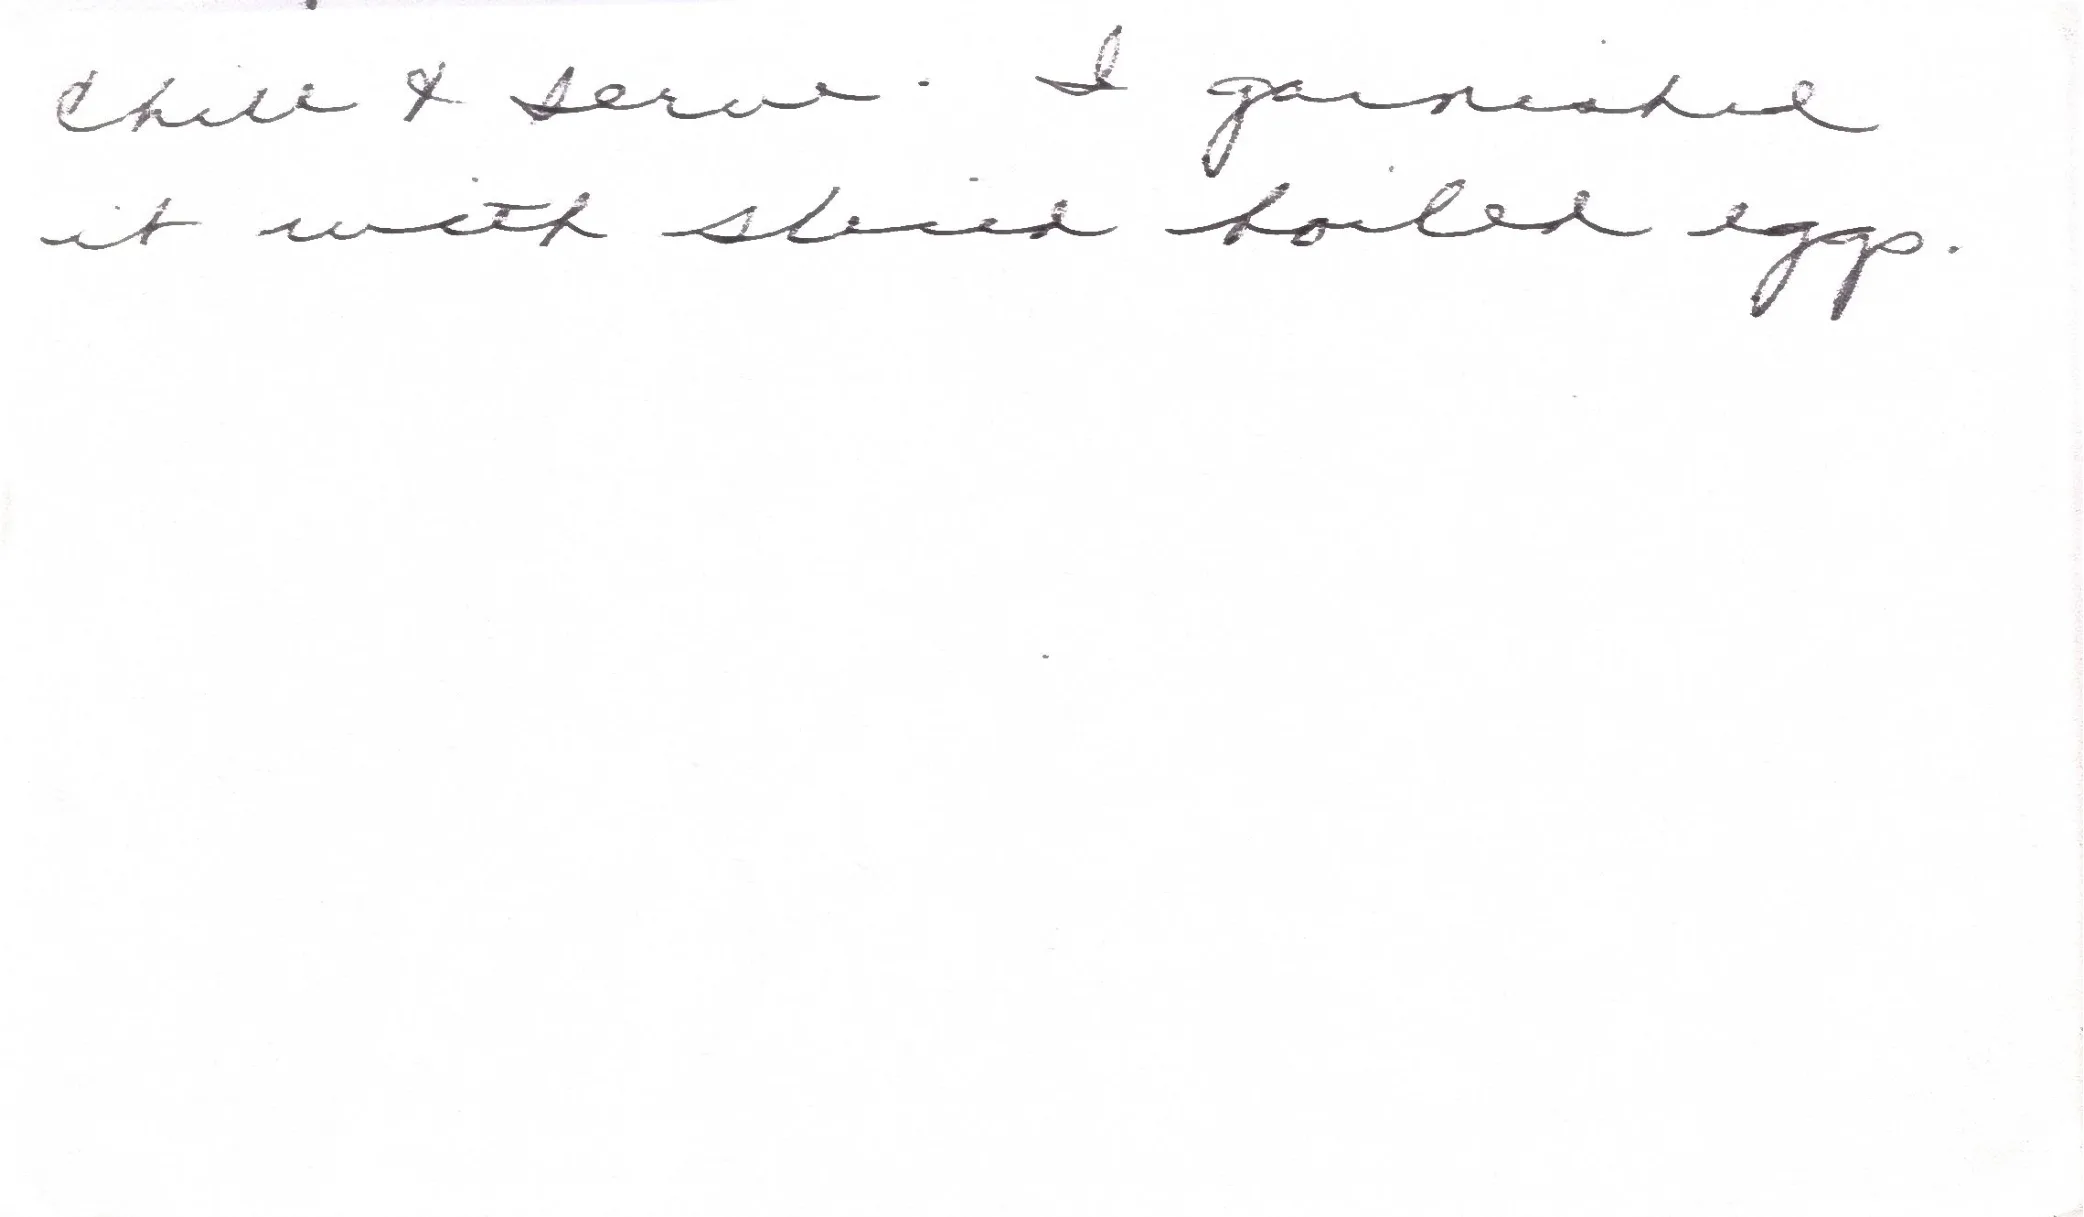 Chill & serve. I garnished
it with sliced boiled eggs.